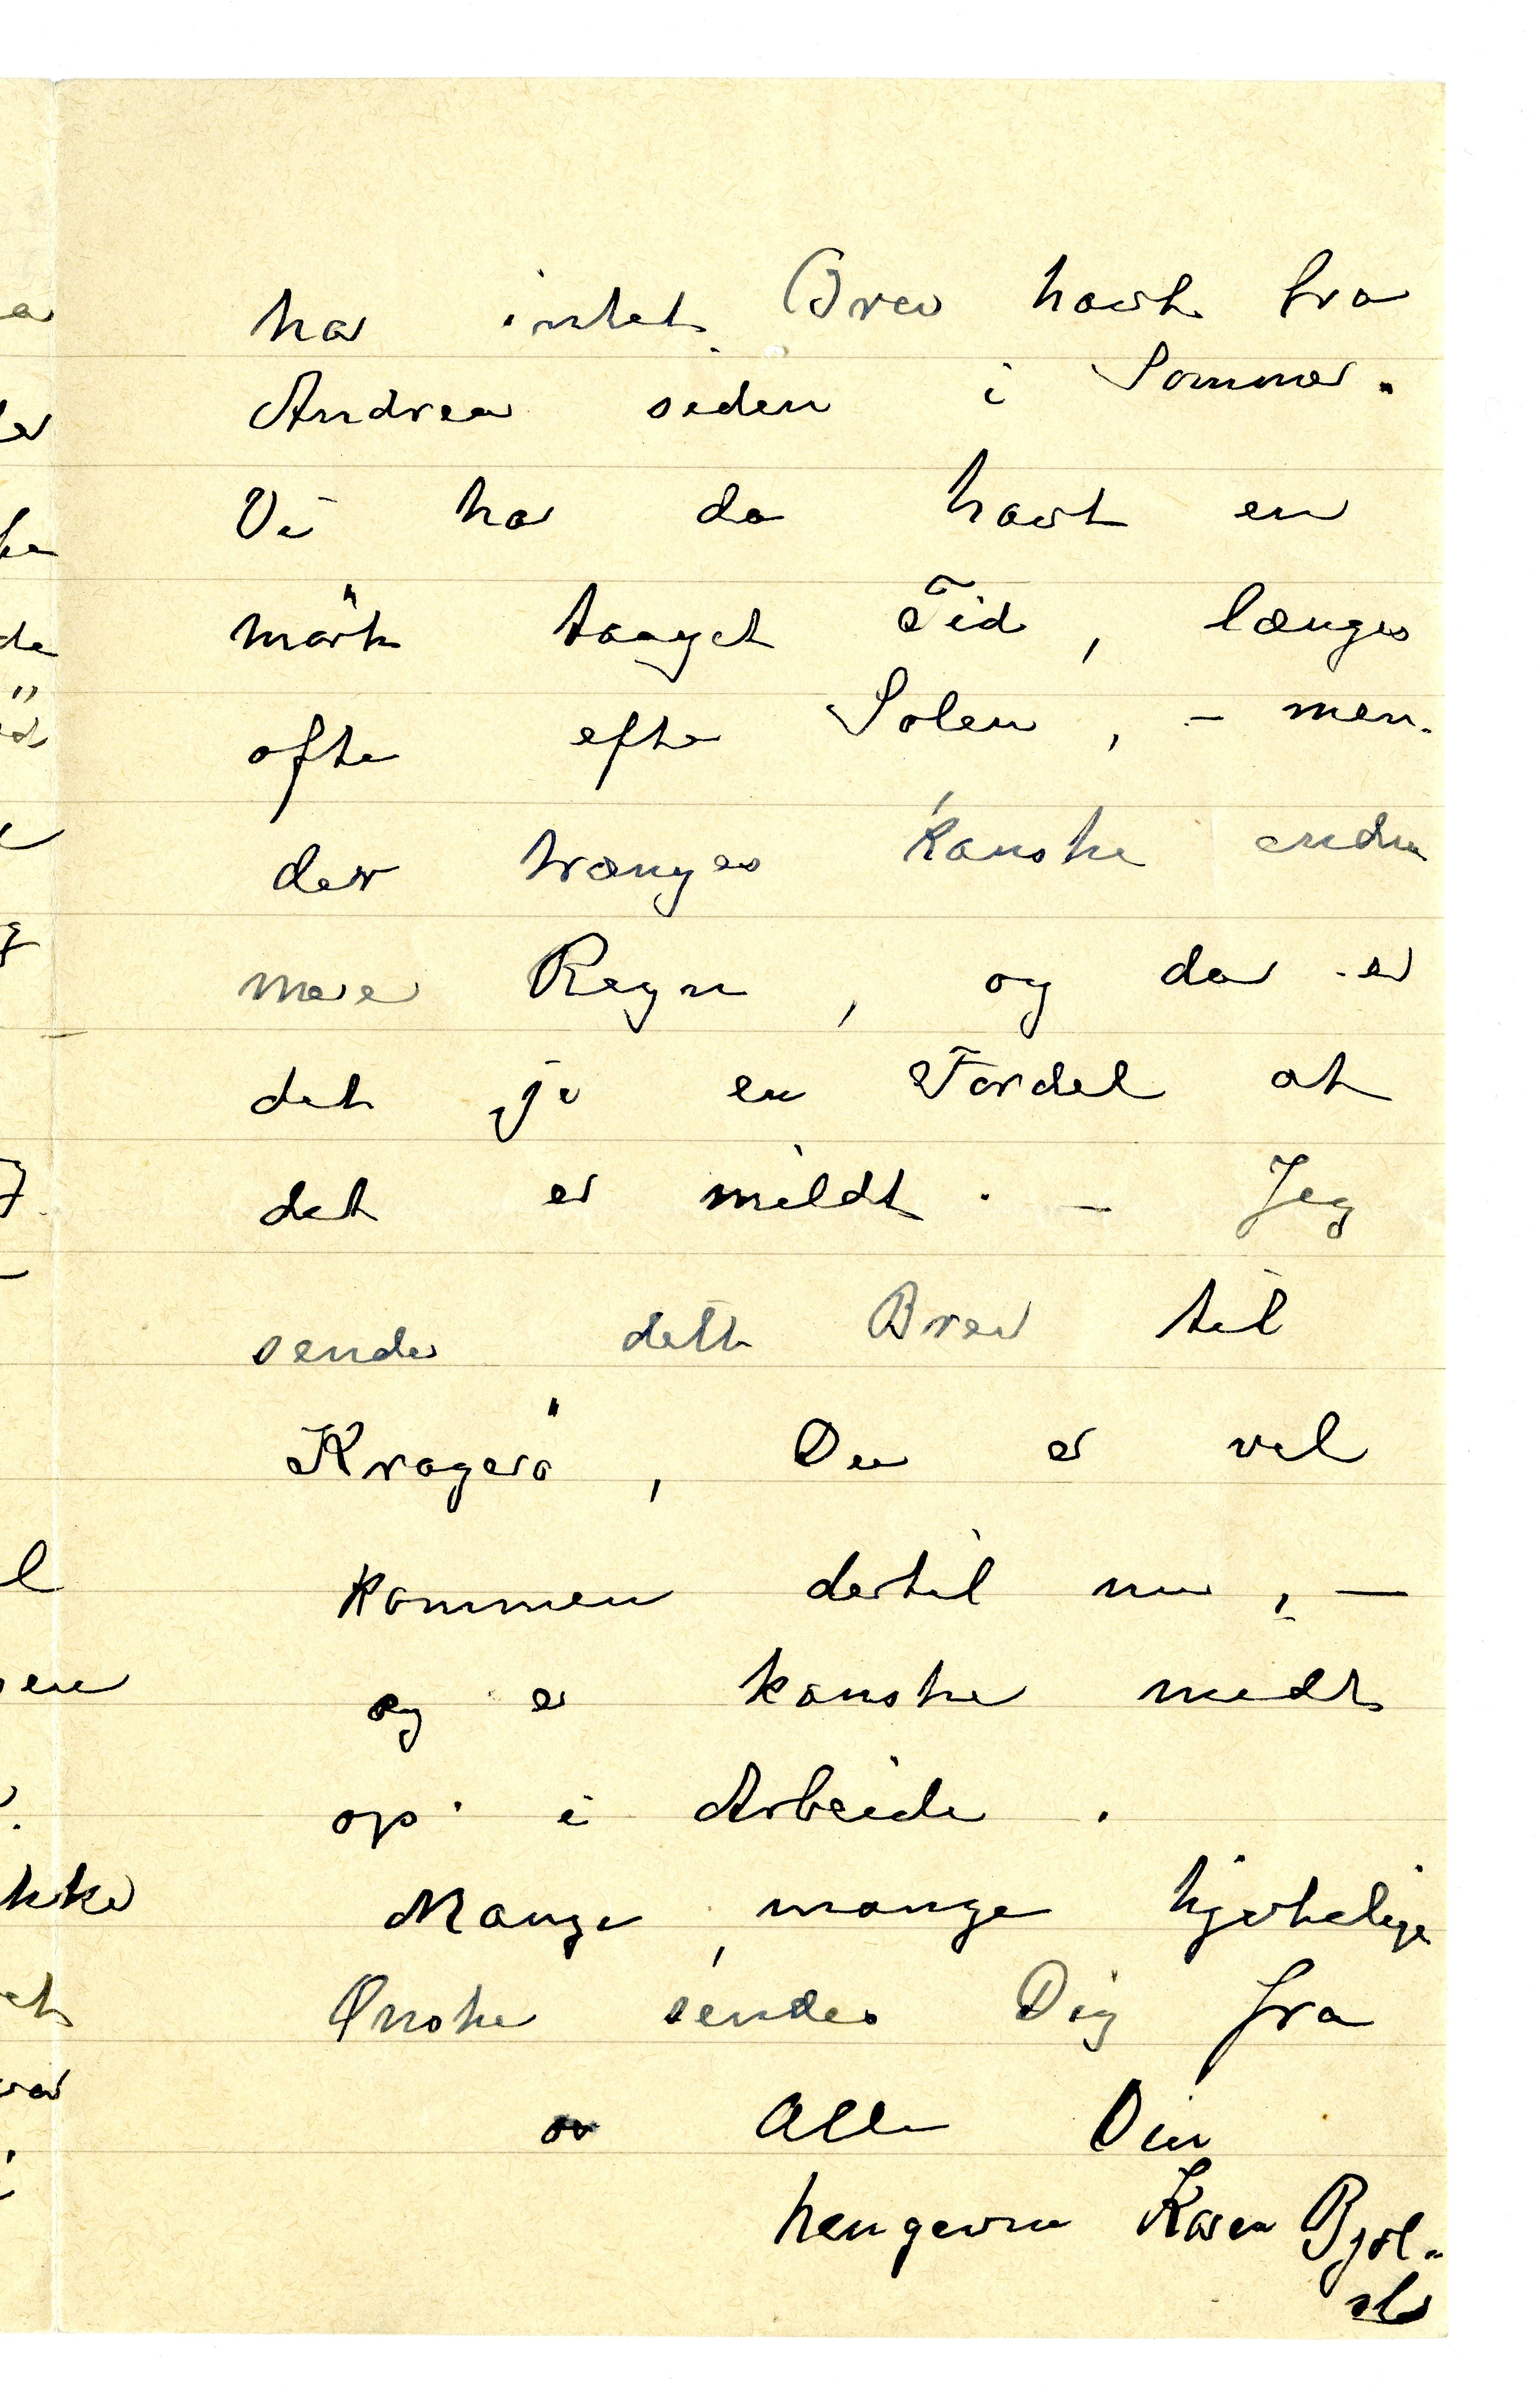 har intet Brev havt fra
Andrea siden i Sommer.
Vi har da havt en
mörk taaget Tid, længes
ofte efter Solen, – men
der trænges kanske endnu
mere Regn, og da er
det jo en Fordel at
det er mildt. – Jeg
sender dette Brev til
Kragerö, Du er vel
kommen dertil nu, –
og er kanske midt
op i Arbeide.
Mange, mange hjertelige
Ønsker sendes Dig fra
os Alle Din
hengevne Karen Bjöl-